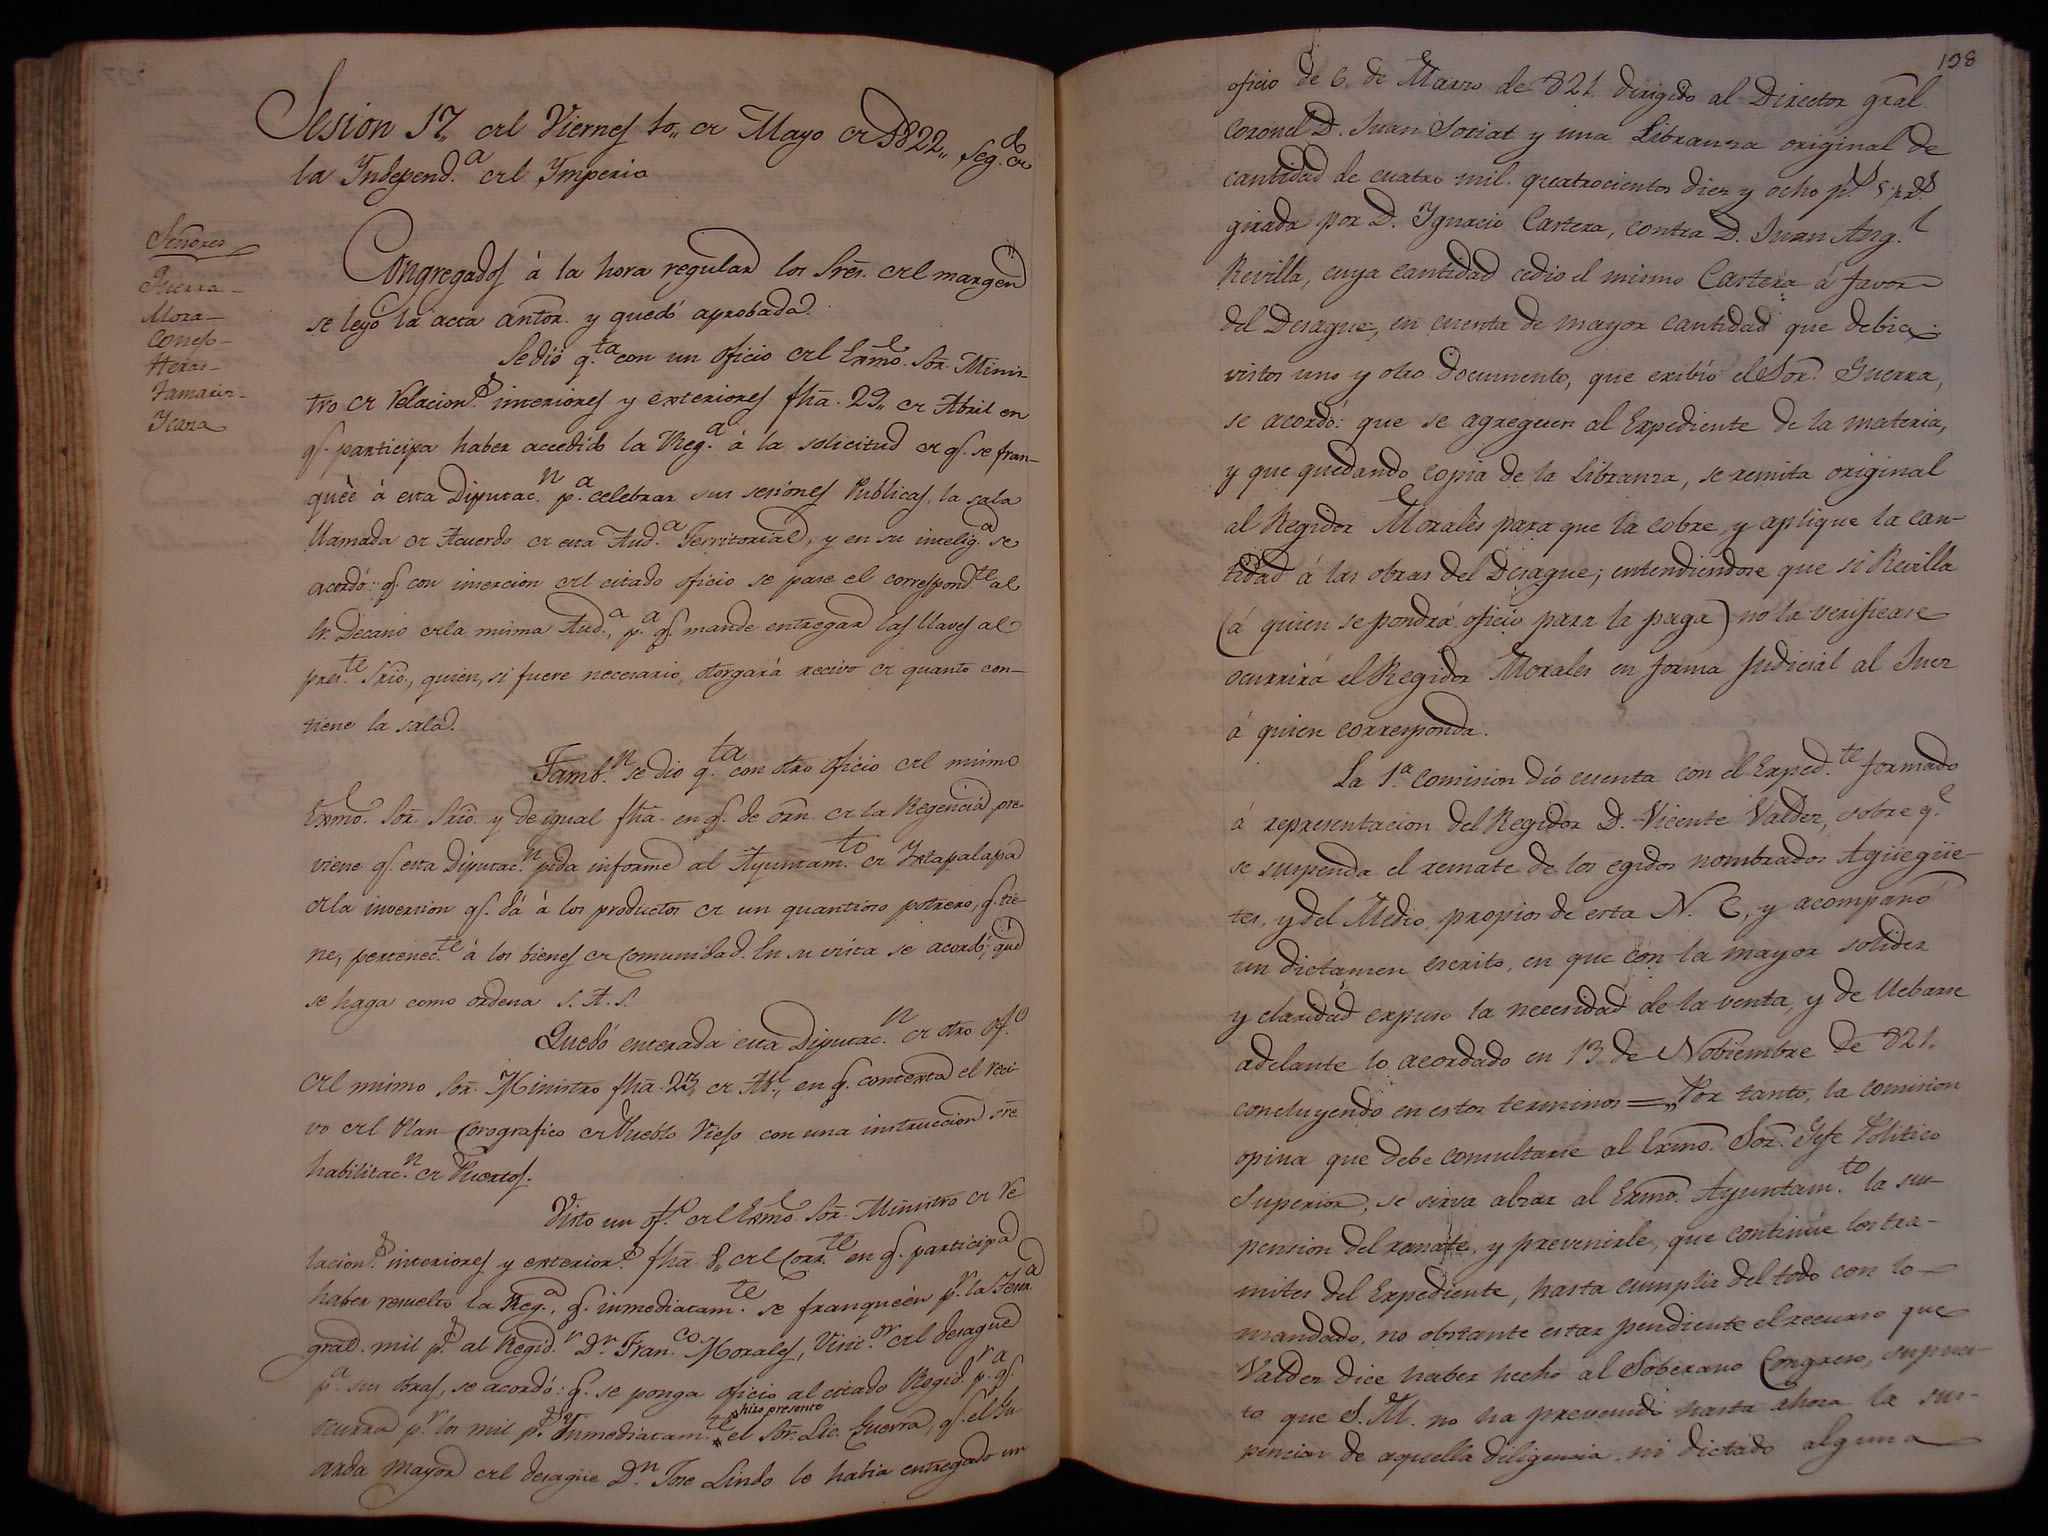 Sesion 17,, del Viernes 10,, de Mayo de 1822,, seg.do de
la Independ.a del Imperio
Señores
Guerra
Mora
Conejo
Heras
Tamariz
Icaza
Congregados á la hora regular los Sres. del margen
se leyó la acta antor. y quedó aprobada.
Se dió q.ta con un oficio del Exmo. Sor. Minis-
tro de Relacion.s interiores y exteriores fha. 29,, de Abril en
q. participa haber accedido la Reg.a á la solicitud de q. se fran-
quée á esta Diputac.n p.a celebrar sus sesiones Publicas, la sala
llamada de Acuerdo de esta Aud.a Territorial, y en su intelig.a se
acordó: q. con insercion del citado oficio se pase el correspond.te al
Sr. Decano de la misma Aud.a, p.a q. mande entregar las llaves al
pres.te Srio., quien, si fuere necesario, otorgará recivo de quanto con-
tiene la sala.
Tamb.n se dio q.ta con otro oficio del mismo
Exmo. Sor. Srio. y de igual fha. en q. de orn. de la Regencia pre-
viene q. esta Diputac.n pida informe al Ayuntam.to de Ixtapalapa
de la inversion q. dá á los productos de un quantioso potrero, q. tie-
ne, pertenec.te á los bienes de Comunidad. En su vista se acordó; que
se haga como ordena S. A. S.
Quedó enterada esta Diputac.n de otro of.o
del mismo Sor. Ministro fha. 23,, de Ab.l, en q. contexta el reci-
vo del Plan Corografico de Pueblo Viejo con una instruccion sre.
habilitac.n de Puertos.
Visto un of.o del Exmo. Sor. Ministro de Re
lacion.s interiores y exterior.s fha. 8,, del Corr.te en q. participa
haber resuelto la Reg.a, q. inmediatam.te se franqueén p.r la Tesor.a
gral. mil p.s al Regid.r D.n Fran.co Morales, Visit.or del desague
p.a sus obras, se acordó: q. se ponga oficio al citado Regid.r p.a q.
ocurra p.r los mil p.s Inmediatam.te hizo presente el Sor. Lic. Guerra, q. el Gu-
arda mayor del desagüe D.n Jose Lindo le habia entregado un
108
oficio de 6. de Marzo de 821. dirigido al Director gral.
Coronel D. Juan Sociat y una Libranza original de
cantidad de cuatro mil quatrocientos diez y ocho p.s 5. r.s
girada por D. Ygnacio Castera, contra D. Juan Ang.l
Revilla, cuya cantidad cedio el mismo Castera á favor
del Desague, en cuenta de mayor cantidad que debia:
vistos uno y otro documento, que exibió el Sor. Guerra,
se acordó: que se agreguen al Expediente de la materia,
y que quedando copia de la Libranza, se remita original
al Regidor Morales para que la cobre, y aplique la can-
tidad á las obras del Desague; entendiendose que si Revilla
(á quien se pondrá oficio para la paga) no la verificare
ocurrirá el Regidor Morales en forma Judicial al Juez
á quien corresponda.
La 1.a comision dió cuenta con el Exped.te formado
á representacion del Regidor D. Vicente Valdez, sobre q.e
se suspenda el remate de los egidos nombrados Agüegüe-
tes, y del Medio, propios de esta N. C., y acompañó
un dictamen escrito, en que con la mayor solidez
y claridad expuso la necesidad de la venta, y de llebarse
adelante lo acordado en 13,, de Nobiembre de 821.
concluyendo en estos terminos =,, Por tanto, la comision
opina que debe consultarse al Exmo. Sor. Gefe Politico
Superior, se sirva alzar al Exmo. Ayuntam.to la sus-
pension del remate, y prevenirle, que continúe los tra-
mites del Expediente, hasta cumplir del todo con lo
mandado, no obstante estar pendiente el recurso que
Valdez dice haber hecho al Soberano Congreso, supues-
to que S. M. no ha prevenido hasta ahora la sus-
pencion de aquella diligencia, ni dictado alguna